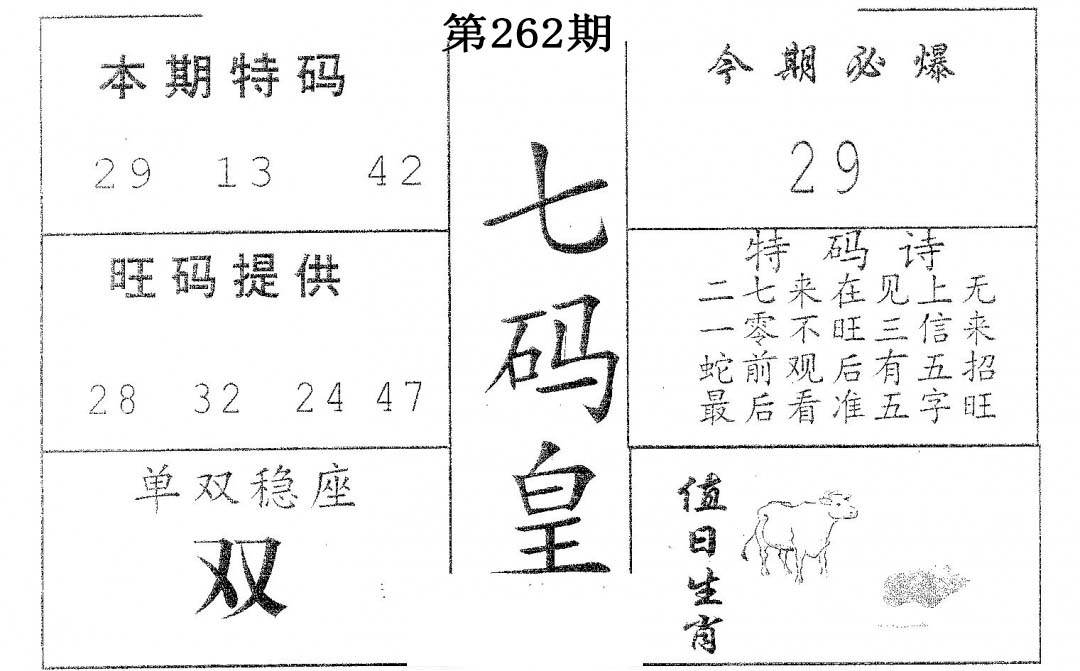 第262期
本期特码
29 13 42
旺码提供
28 32 24 47
单双稳座
双
七码皇
今期必爆
29
特码诗
二七来在见上无
一零不旺三信来
蛇前观后有五招
最后看准五字旺
值日生肖